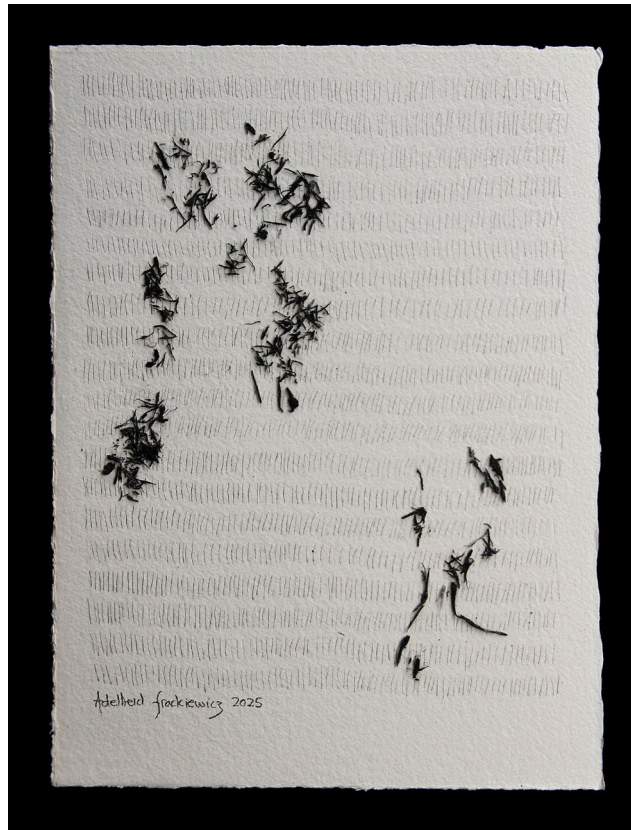 Adelheid Frackiewicz 2025